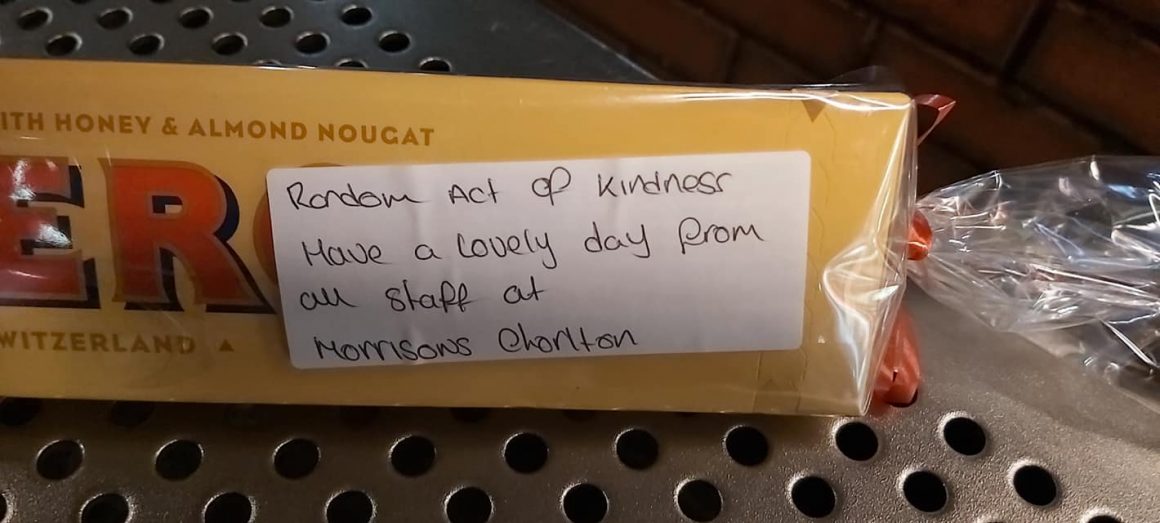 ITH HONEY & ALMOND NOUGAT
ER
Random Act of Kindness
Have a lovely day from
all staff at
Morrisons Chorlton
WITZERLAND